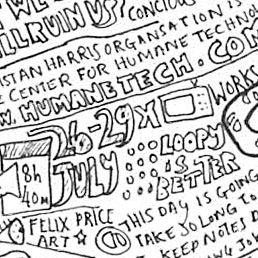 WE
ILL RUIN US? CONCIOU
STAN HARRIS ORGANSATION IS
E CENTER FOR HUMANE TECHNO
W.HUMANETECH.COM
26-29K
WORKS
JULY
8h
40M
LOOPY
IS
BETTER
FELIX PRICE
ART
THIS DAY IS GOING
TAKE SO LONG TO
KEEP NOTES D